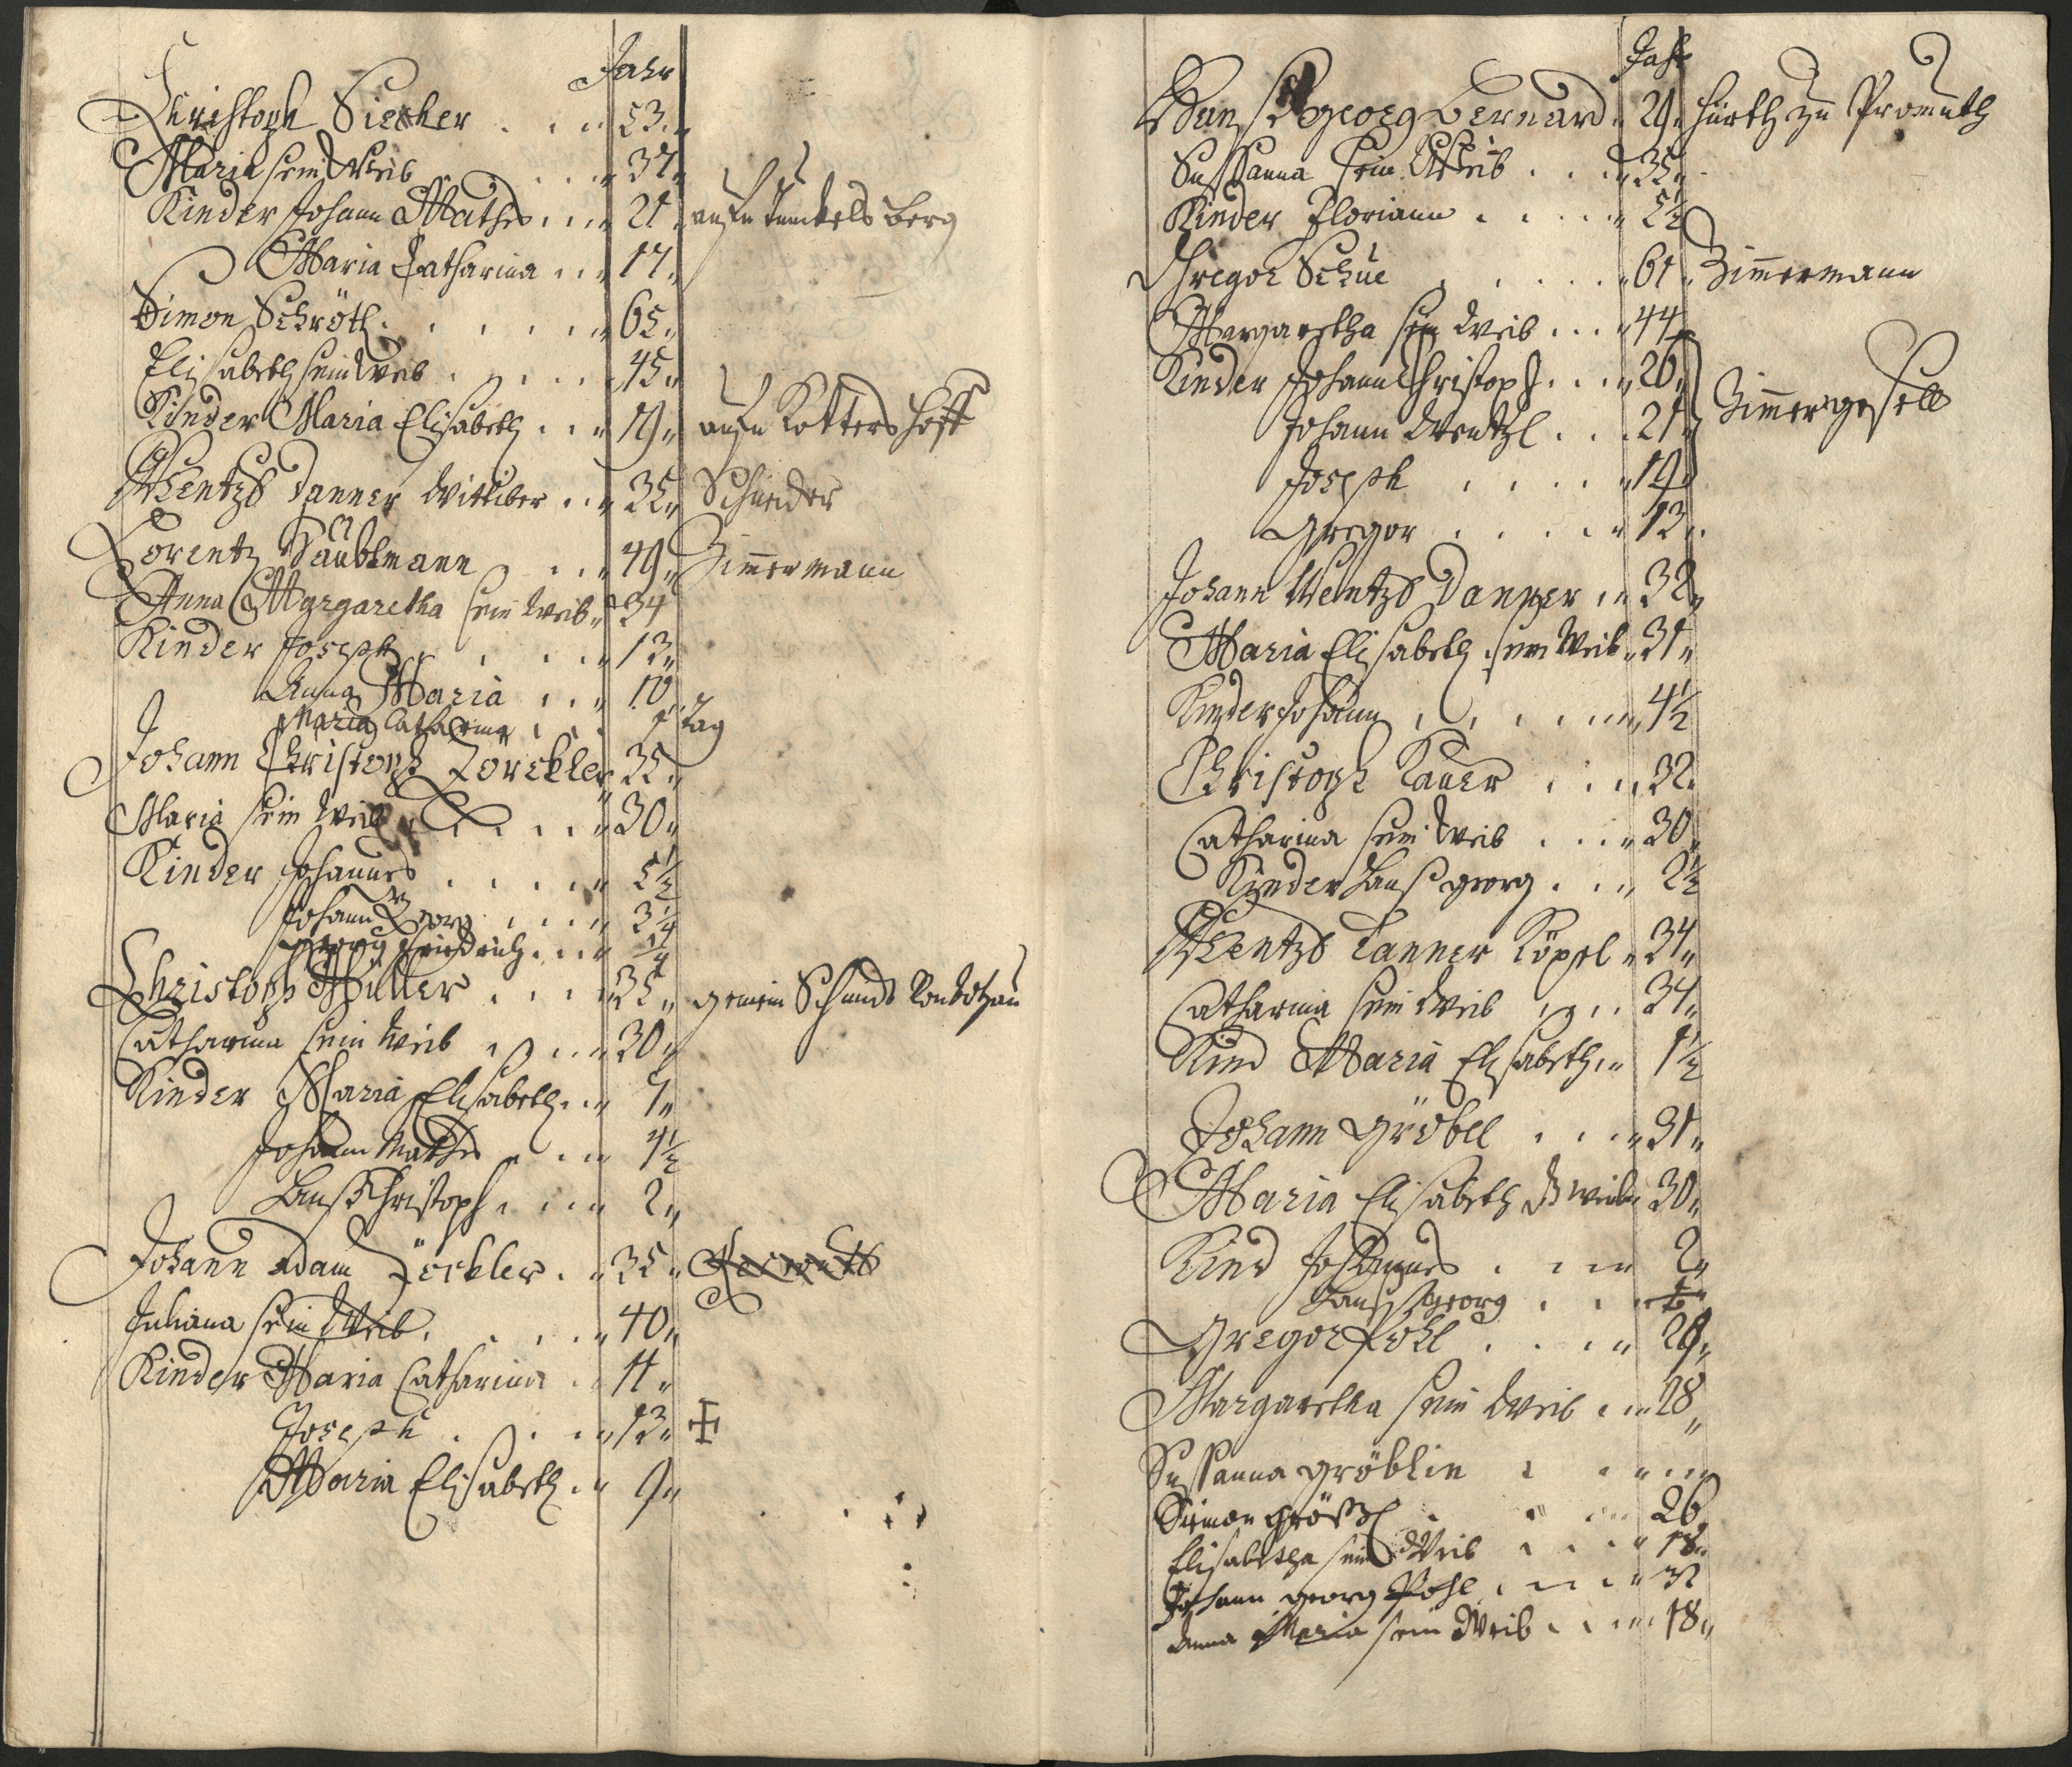 Jahr
Christoph Siecher . . . 53.
Maria sein Weib . . . 37.
Kinder Johann Mathes . . . 21. aufn Dunckels berg
Maria Catharina . . . 17.
Simon Schröth . . . 65.
Elisabeth sein Weib . . . 45.
Kinder Maria Elisabeth . . . 19. aufn Kotters Hoff
Wentzl Danner Wittiber . . . 35. Schneider
Lorentz Säüblmann . . . 49. Zimmermann
Anna Margaretha sein Weib 34
Kinder Joseph . . . 13.
Anna Maria . . . 10
Maria Catharina . . . Tag
Johann Christoph Zörckler 35.
Maria sein Weib . . . 30.
Kinder Johannes . . . 5½
Johann Georg . . . 3¼
Georg Friedrich . . . ¼
Christoph Müller . . . 35. gemein Schmidt
Catharina sein Weib . . . 30.
Kinder Maria Elisabeth . . . 7.
Johann Mathes . . . 4½
Hanß Christoph . . . 2.
Johann Adam Zörckler . . . 35.
Juliana sein Weib . . . 40.
Kinder Maria Catharina . . 11.
Joseph . . . 13.
Maria Elisabeth . . 9.
Jahr
Hanß Georg Bernard 29. Hürth zu Promuth
Susanna sein Weib . . . 35.
Kinder Floriann . . . 5½
Gregor Schue . . . 61. Zimmermann
Margaretha sein Weib . . . 44
Kinder Johann Christoph . . . 26. Zimmergesell
Johann Wentzl . . . 21.
Joseph . . . 19
Gregor . . . 13.
Johann Wentzl Danner . . 32.
Maria Elisabeth sein Weib 31.
Kinder Johann . . . 4½
Christoph Bauer . . . 32.
Catharina sein Weib . . . 30.
Kinder Hanß Georg . . . 2½
Wentzl Danner Köpel 34.
Catharina sein Weib . . . 34.
Kind Maria Elisabeth . . 1½
Johann Gröbel . . . 31.
Maria Elisabeth Weib 30.
Kind Johannes . . . 2.
Hanß Georg . . .
Gregor Pohl . . . 29.
Margaretha sein Weib . . 28
Susanna Gröblin . . .
Simon Größl . . . 26
Elisabetha sein Weib . . . 18.
Johann Georg Pohl . . . 32
Anna Maria sein Weib . . . 18.